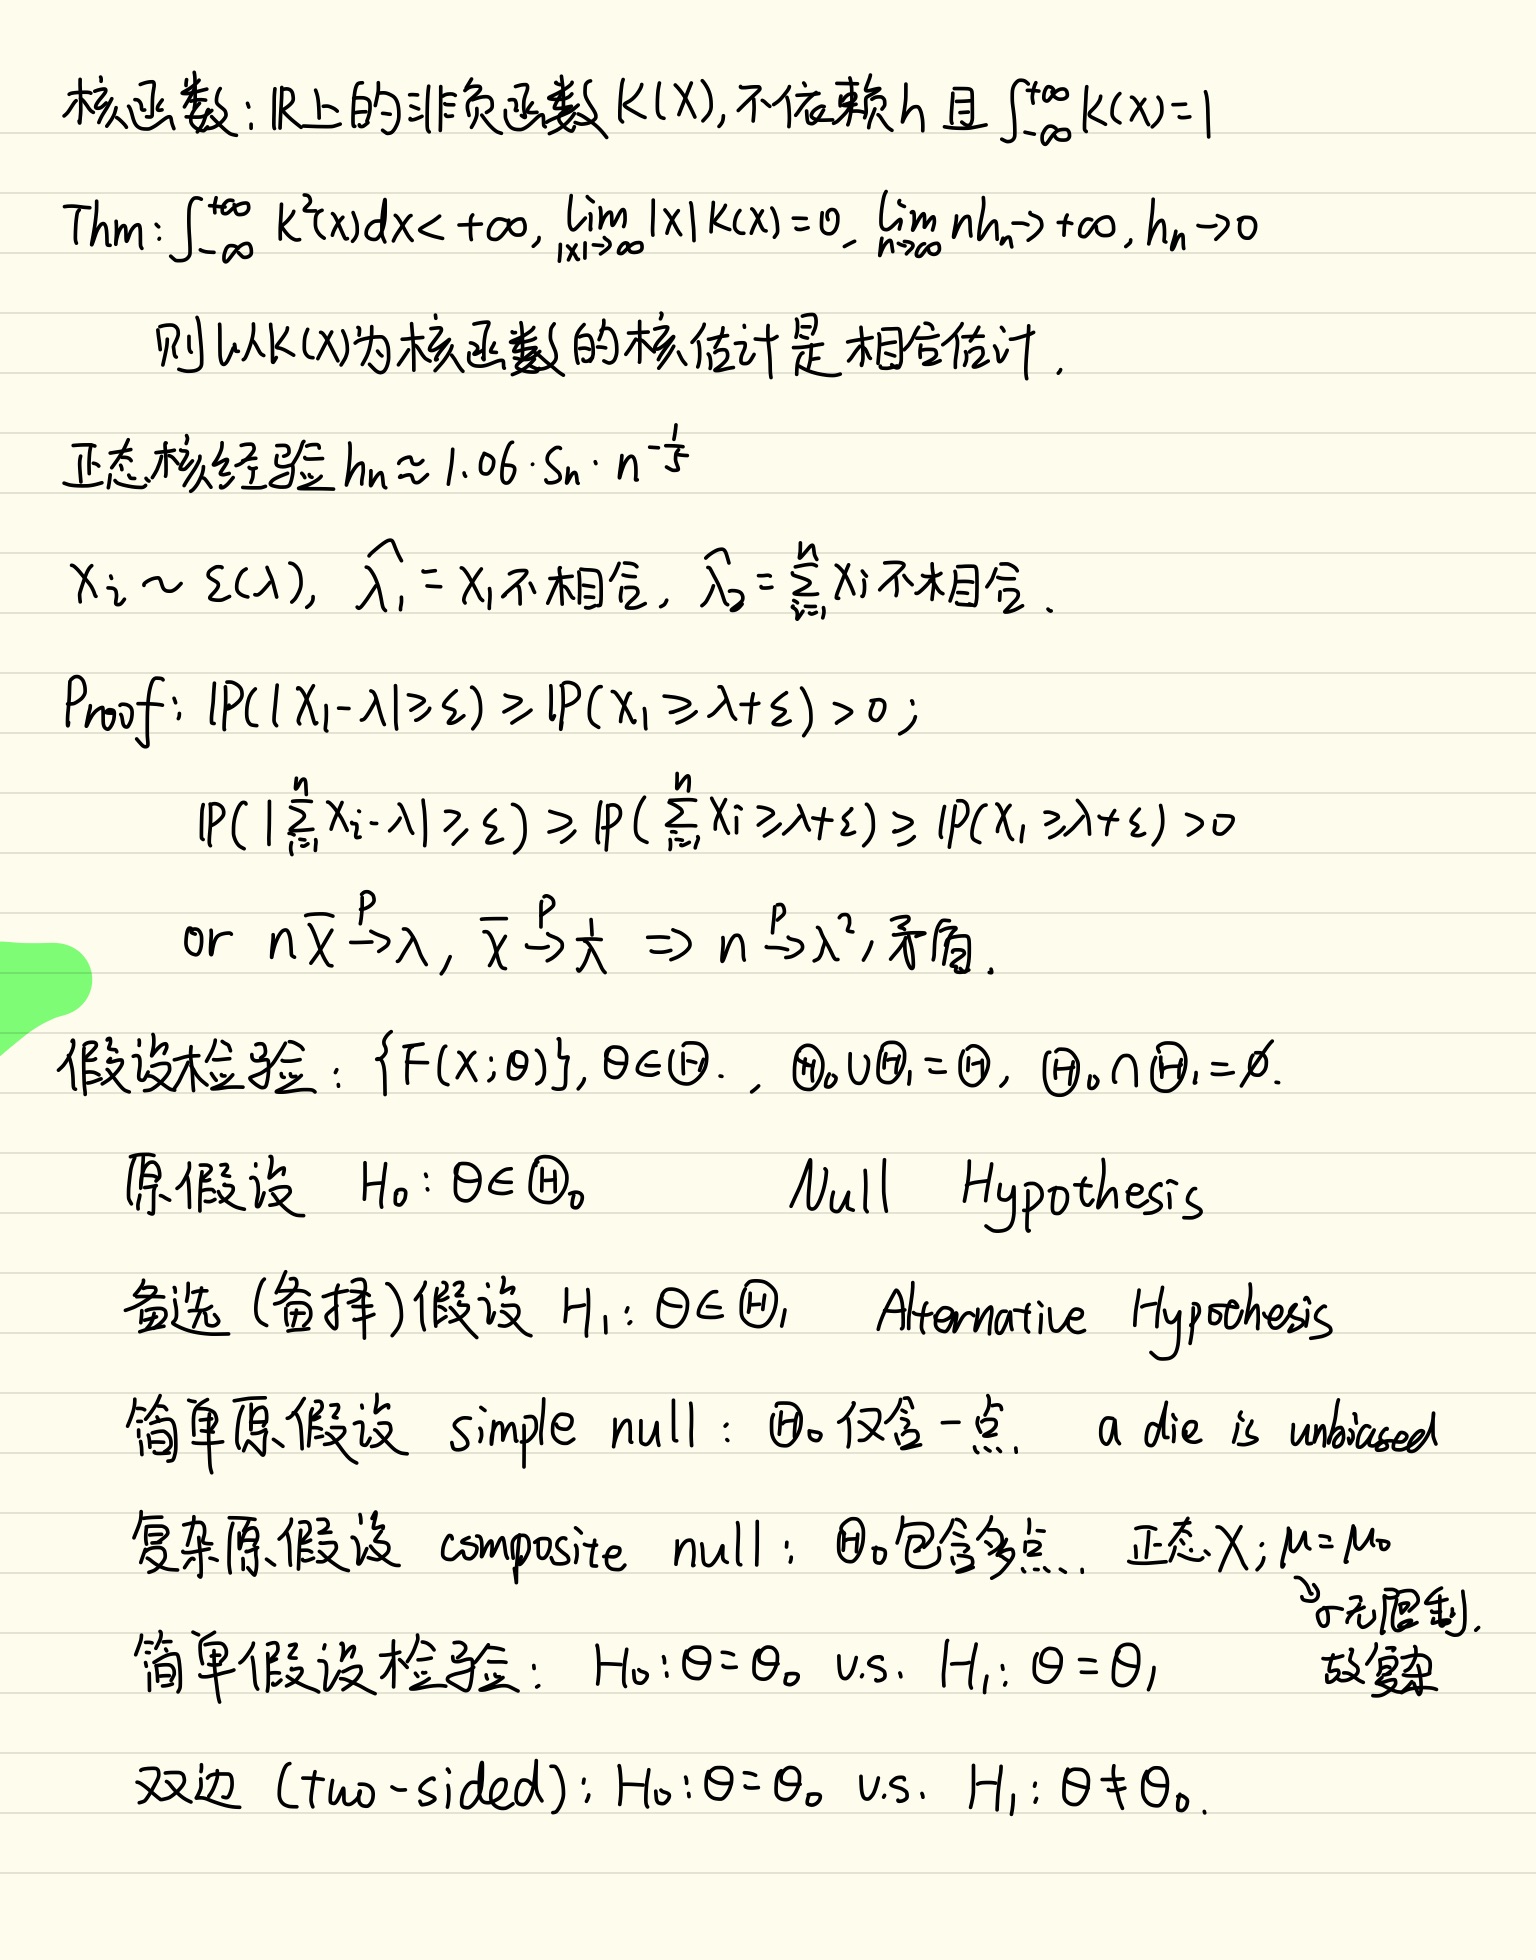 核函数: ℝ上的非负函数 K(X), 不依赖 h 且 ∫_{-∞}^{+∞} K(X)=1
Thm: ∫_{-∞}^{+∞} K²(x)dx < +∞, lim_{|x|→∞} |x| K(x) = 0, lim_{n→∞} nhₙ → +∞, hₙ → 0
则以K(X)为核函数的核估计是相合估计.
正态核经验 hₙ ≈ 1.06 · Sₙ · n^{-1/5}
X_i ~ ε(λ), \hat{λ_1} = X_1 不相合, \hat{λ_2} = ∑_{i=1}^{n} X_i 不相合.
Proof: ℙ(|X_1-λ| ≥ ε) ≥ ℙ(X_1 ≥ λ+ε) > 0 ;
ℙ(|∑_{i=1}^{n} X_i-λ| ≥ ε) ≥ ℙ(∑_{i=1}^{n} X_i ≥ λ+ε) ≥ ℙ(X_1 ≥ λ+ε) > 0
or n\bar{X} \xrightarrow{P} λ, \bar{X} \xrightarrow{P} 1/λ ⇒ n \xrightarrow{P} λ², 矛盾.
假设检验: {F(X;θ)}, θ∈Θ. , Θ₀∪Θ₁ = Θ, Θ₀∩Θ₁ = ∅.
原假设 H₀: θ∈Θ₀ Null Hypothesis
备选 (备择) 假设 H₁: θ∈Θ₁ Alternative Hypothesis
简单原假设 simple null: Θ₀ 仅含一点. a die is unbiased
复杂原假设 composite null: Θ₀ 包含多点. 正态X; μ=μ₀
↘σ无限制.
简单假设检验: H₀: θ=θ₀ v.s. H₁: θ=θ₁ 故复杂
双边 (two-sided): H₀: θ=θ₀ v.s. H₁: θ≠θ₀.